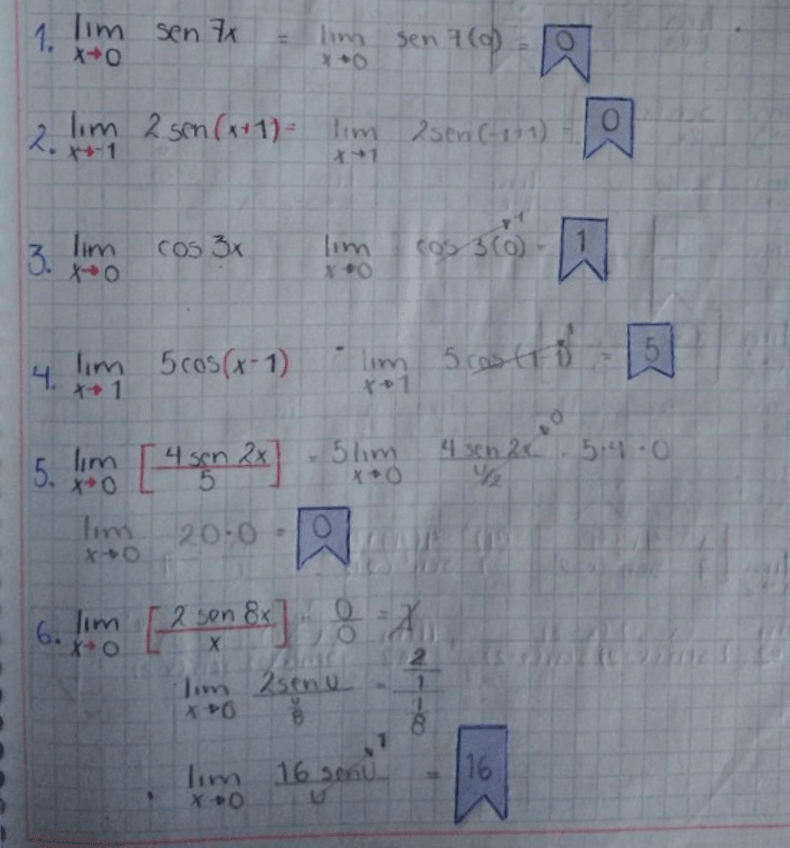 1. lim x→0 sen 7x = lim x→0 sen 7(0) = 0
2. lim x→-1 2 sen (x+1) = lim x→1 2sen (-1+1) = 0
3. lim x→0 cos 3x lim x→0 cos 3(0) = 1 1
4. lim x→1 5cos (x-1) - lim x→1 5 cos (1-1) 1 = 5
5. lim x→0 [4 sen 2x / 5] = 5 lim x→0 4 sen 2x / u/2 0 . 5.4 . 0
lim x→0 20.0 = 0
6. lim x→0 [2 sen 8x / x] = 0/0 =
lim x→0 2sen u / u/8 = 2/1 / 1/8
lim x→0 16 sen u / u 1 = 16